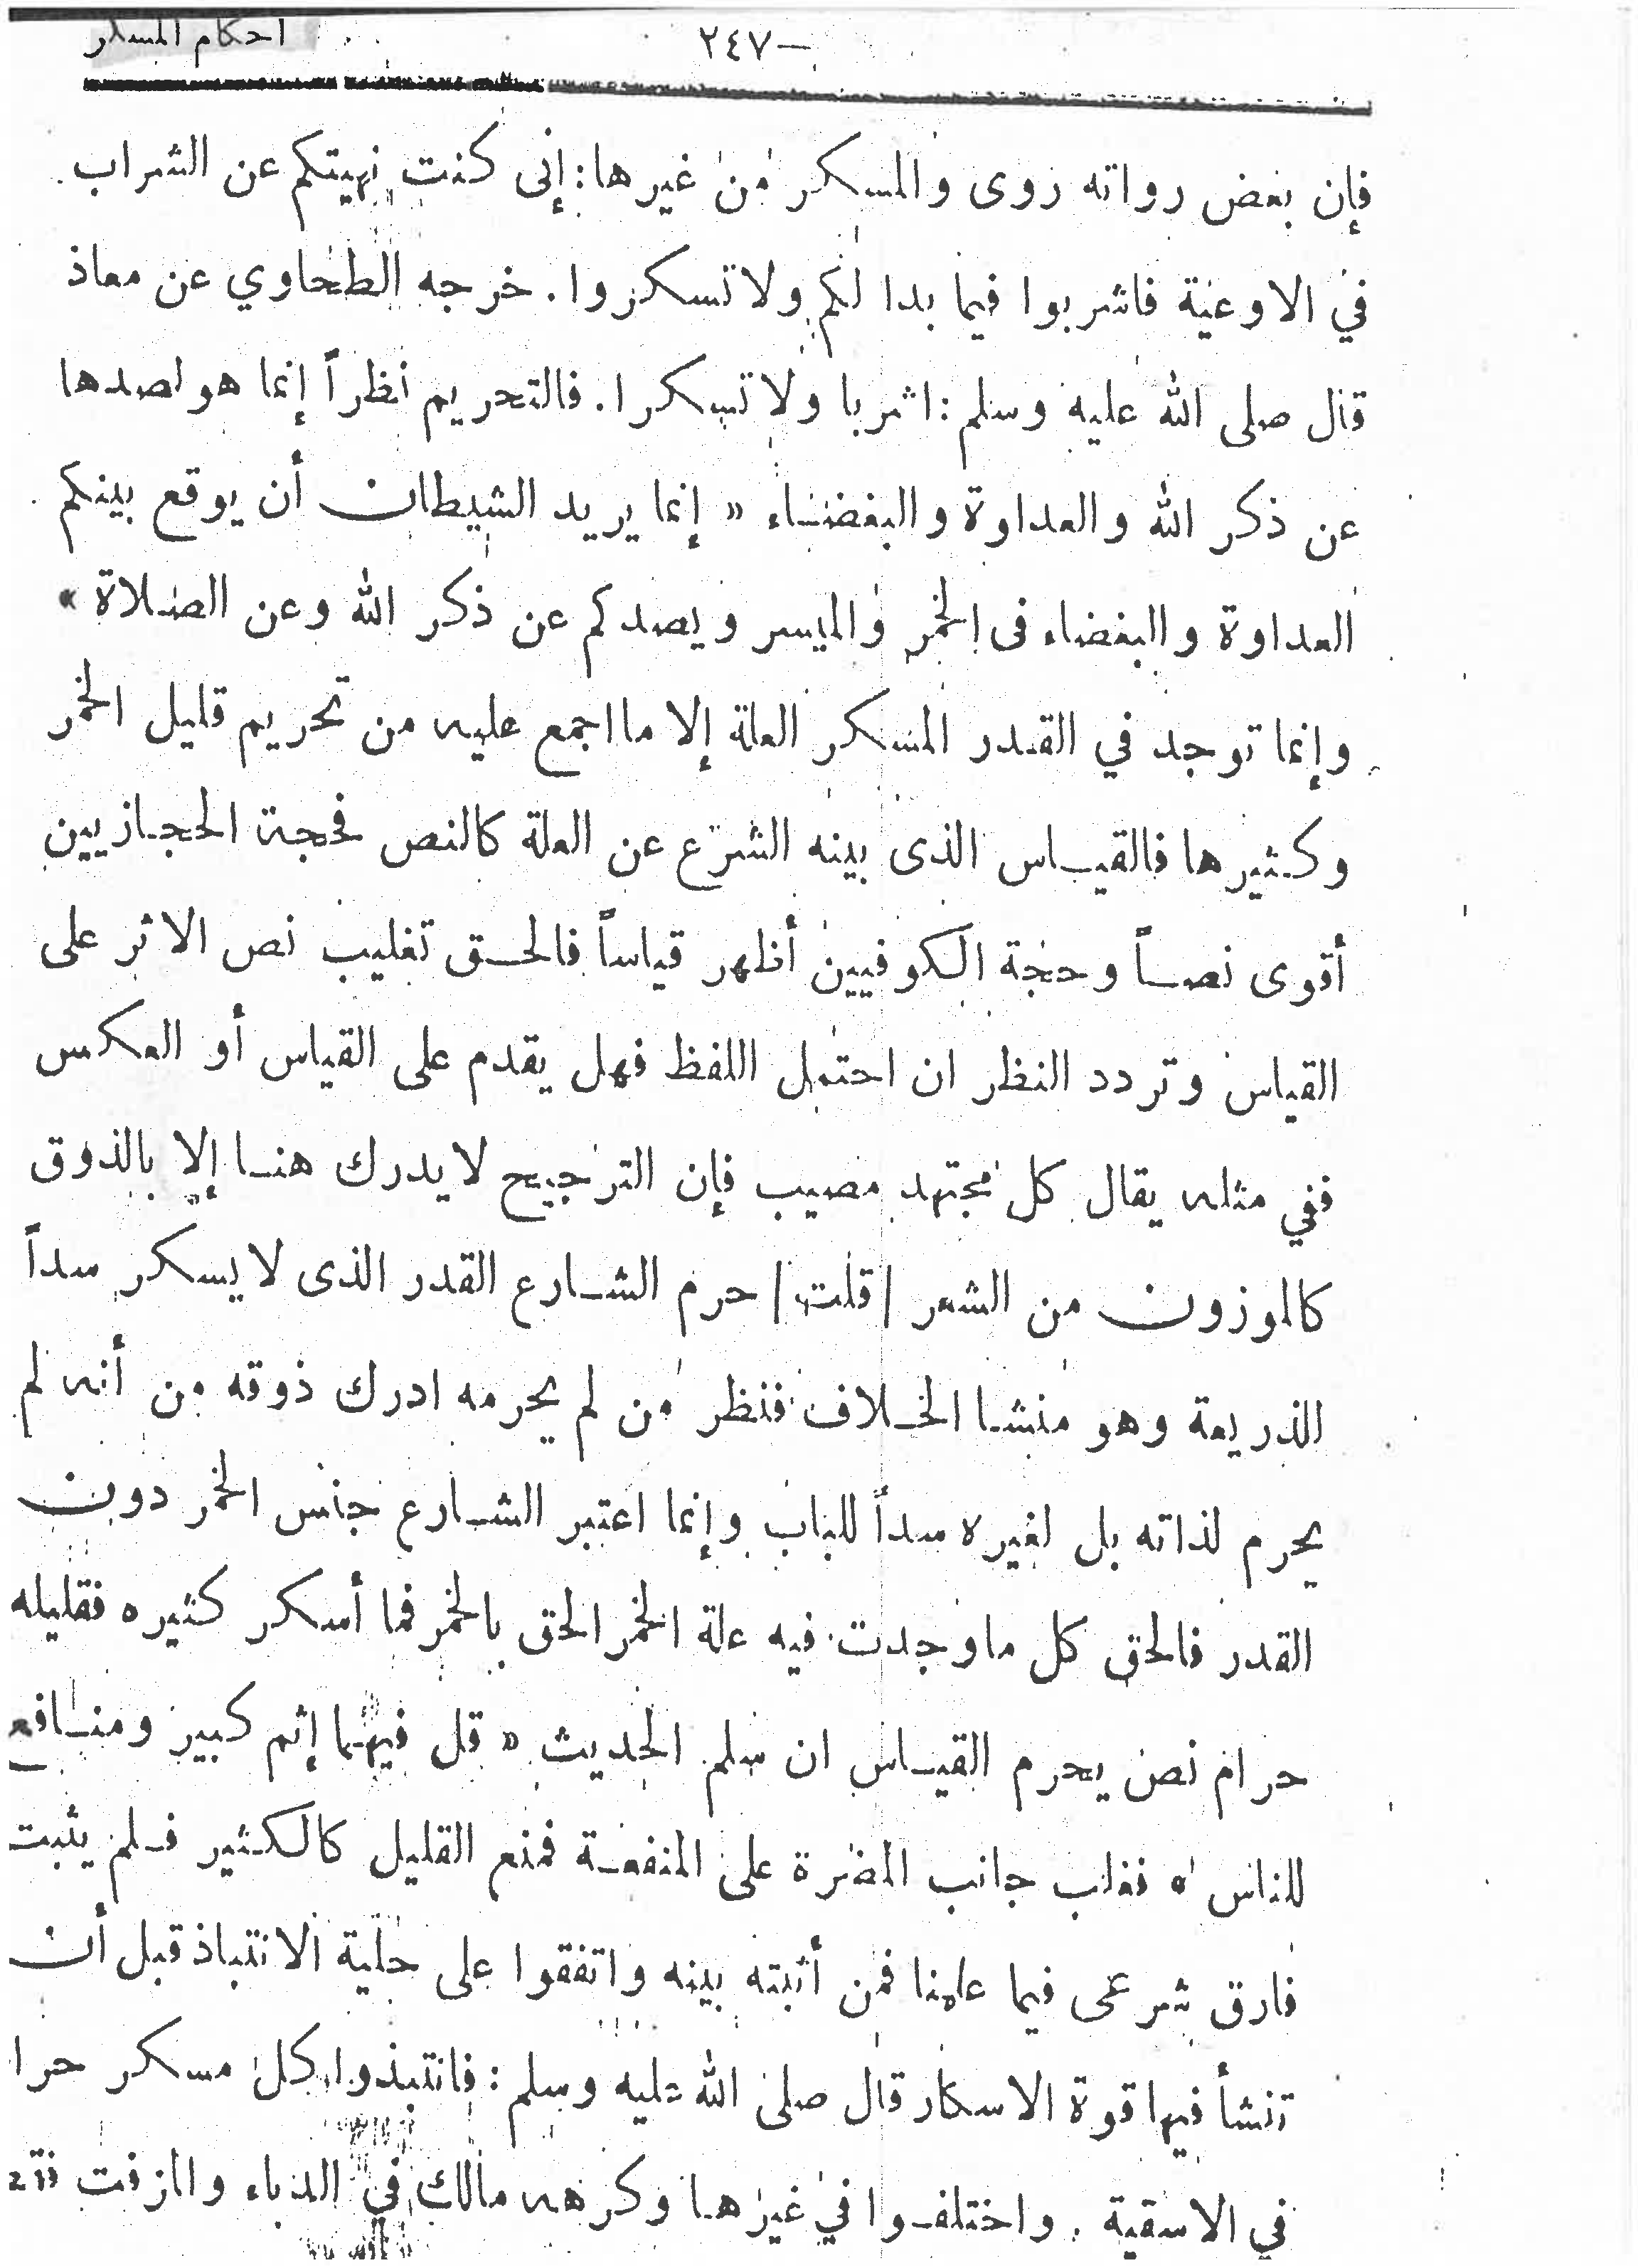 ٢٤٧— احكام المسكر
فإن بعض رواته روى والمسكر من غيرها: إنى كنت نهيتكم عن الشراب
في الاوعية فاشربوا فيما بدا لكم ولا تسكروا. خرجه الطحاوي عن معاذ
قال صلى الله عليه وسلم: اشربا ولا تسكرا. فالتحريم نظراً إنما هو لصدها
عن ذكر الله والعداوة والبغضاء « إنما يريد الشيطان أن يوقع بينكم
العداوة والبغضاء فى الخمر والميسر ويصدكم عن ذكر الله وعن الصلاة »
وإنما توجد في القدر المسكر العلة إلا ما اجمع عليه من تحريم قليل الخمر
وكثيرها فالقياس الذى بينه الشرع عن العلة كالنص فحجة الحجازيين
أقوى نصاً وحجة الكوفيين أظهر قياساً فالحق تغليب نص الاثر على
القياس وتردد النظر ان احتمل اللفظ فهل يقدم على القياس أو العكس
ففي مثله يقال كل مجتهد مصيب فإن الترجيح لا يدرك هنا إلا بالذوق
كالموزون من الشعر /قلت/ حرم الشارع القدر الذى لا يسكر سداً
الذريعة وهو منشا الخلاف فنظر من لم يحرمه ادرك ذوقه من أنه لم
يحرم لذاته بل لغيره سداً للباب وإنما اعتبر الشارع جنس الخمر دون
القدر فالحق كل ما وجدت فيه علة الخمر الحق بالخمر فما أسكر كثيره فقليله
حرام نص يحرم القياس ان سلم الحديث « قل فيهما إثم كبير ومنافع
للناس » فغلب جانب المضرة على المنفعة فمنع القليل كالكثير فلم يثبت
فارق شرعى فيما علمنا فمن أثبته بينه واتفقوا على حلية الانتباذ قبل أن
تنشأ فيها قوة الاسكار قال صلى الله عليه وسلم: فانتبذوا كل مسكر حرا
في الاسقية. واختلفوا في غيرها وكرهه مالك في الدباء والمزفت